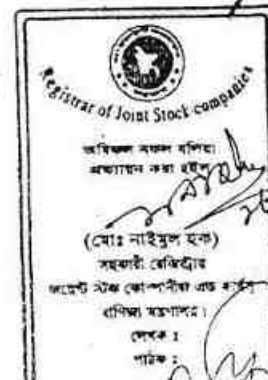 Registrar of Joint Stock companies
অবিকল নকল বলিয়া
প্রত্যায়ন করা হইল
(মোঃ নাইমুল হক)
সহকারী রেজিস্ট্রার
জয়েন্ট স্টক কোম্পানীজ এন্ড ফার্মস
বাণিজ্য মন্ত্রণালয়।
লেখক :
পাঠক :